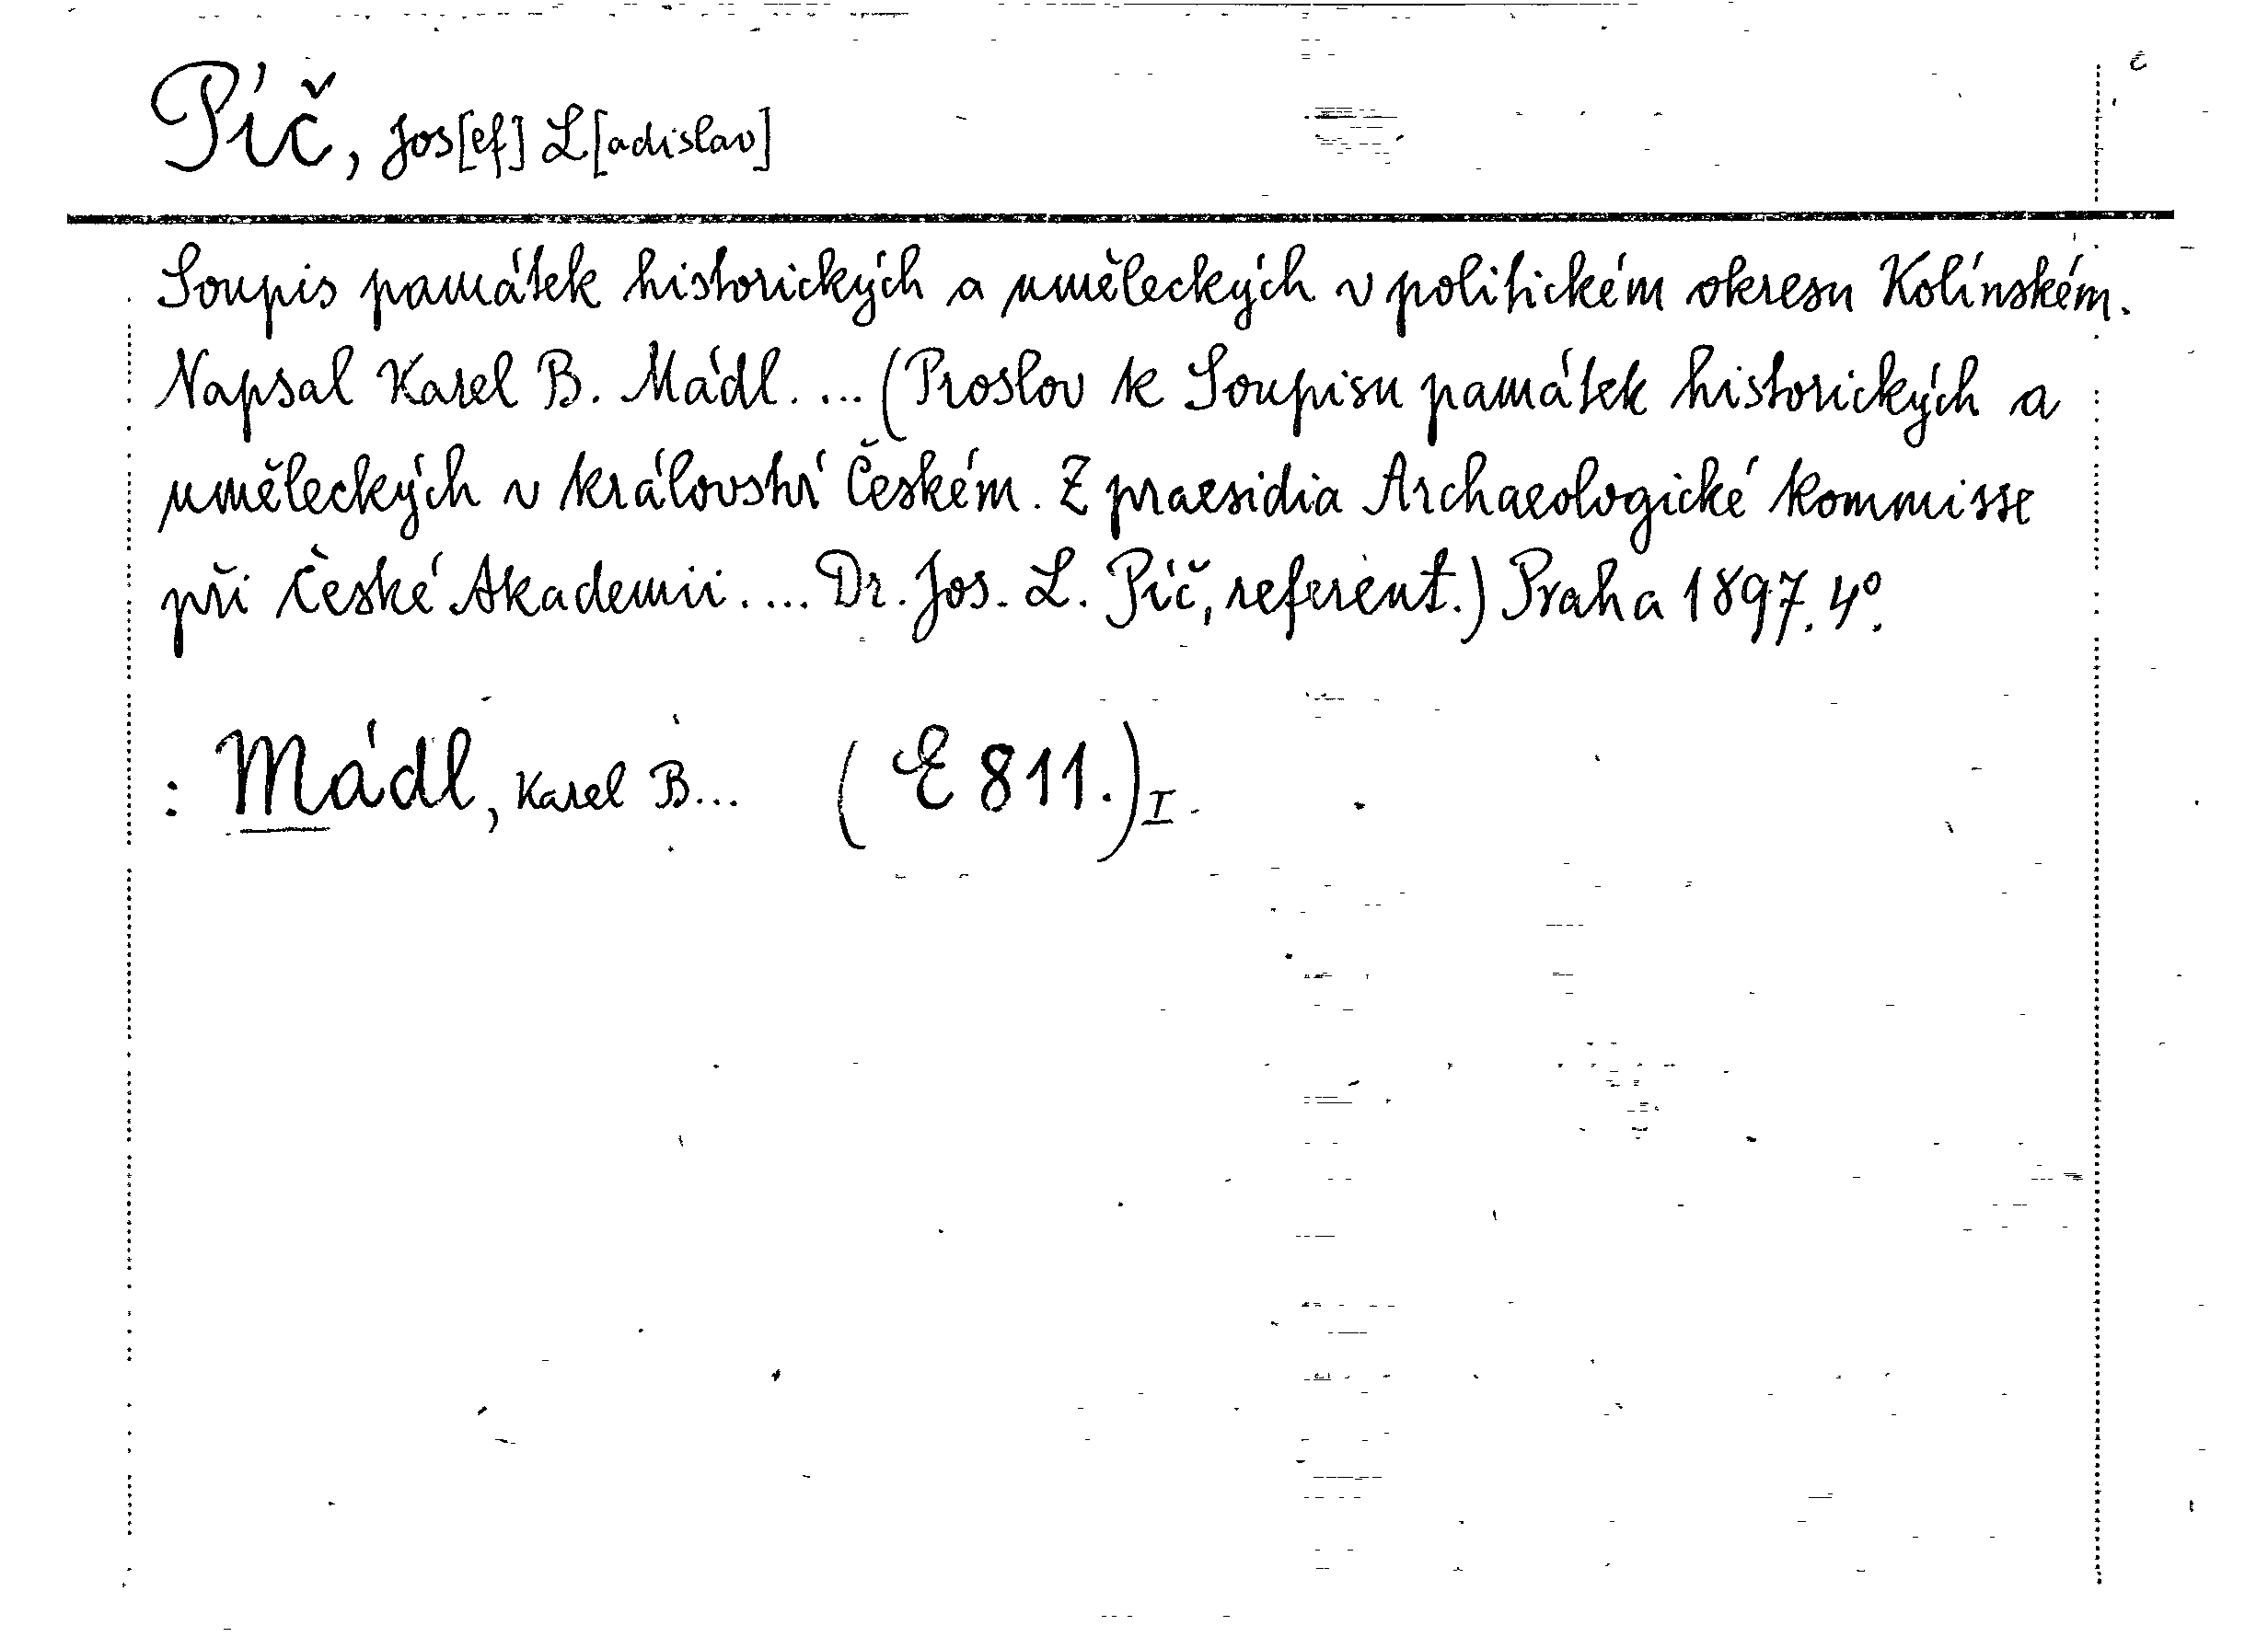 Píč, Jos[ef] L[adislav]
Soupis památek historických a uměleckých v politickém okresu Kolínském.
Napsal Karel B. Mádl. ... (Proslov k Soupisu památek historických a
uměleckých v království Českém. Z praesidia Archaeologické kommisse
při České Akademii. ... Dr. Jos. L. Píč, referent.) Praha 1897. 4°.
: Mádl, Karel B... (E 811.) I.